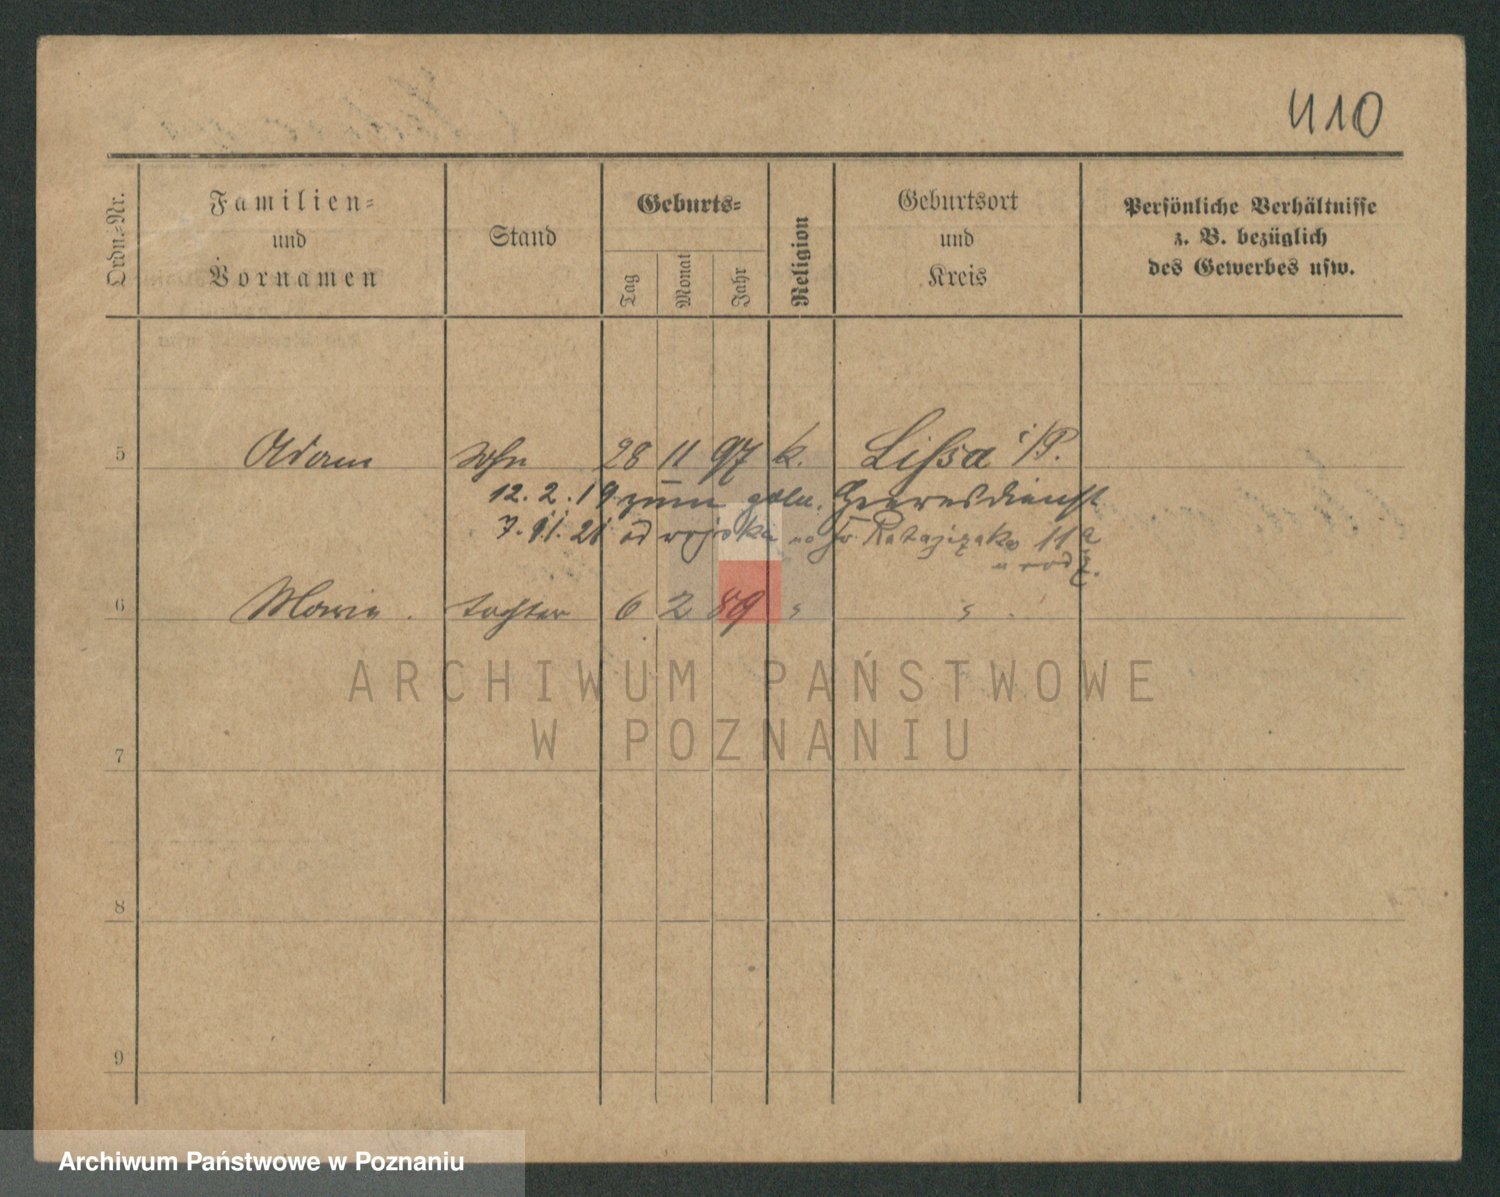 410
Ordn.-Nr.
Familien-
und
Vornamen
Stand
Geburts-
Tag
Monat
Jahr
Religion
Geburtsort
und
Kreis
Persönliche Verhältnisse
z. B. bezüglich
des Gewerbes usw.
5 Adam Sohn 28 11 97 k. Lissa i/P.
12.2.19 zum poln. Heeresdienst
7.11.21 od wojska na Fr Ratajczaka 11a
u rodz.
6 Marie. Tochter 6 2 89 " "
ARCHIWUM PAŃSTWOWE
W POZNANIU
7
8
9
Archiwum Państwowe w Poznaniu